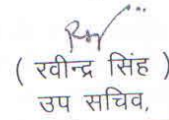 ( रवीन्द्र सिंह )
उप सचिव,